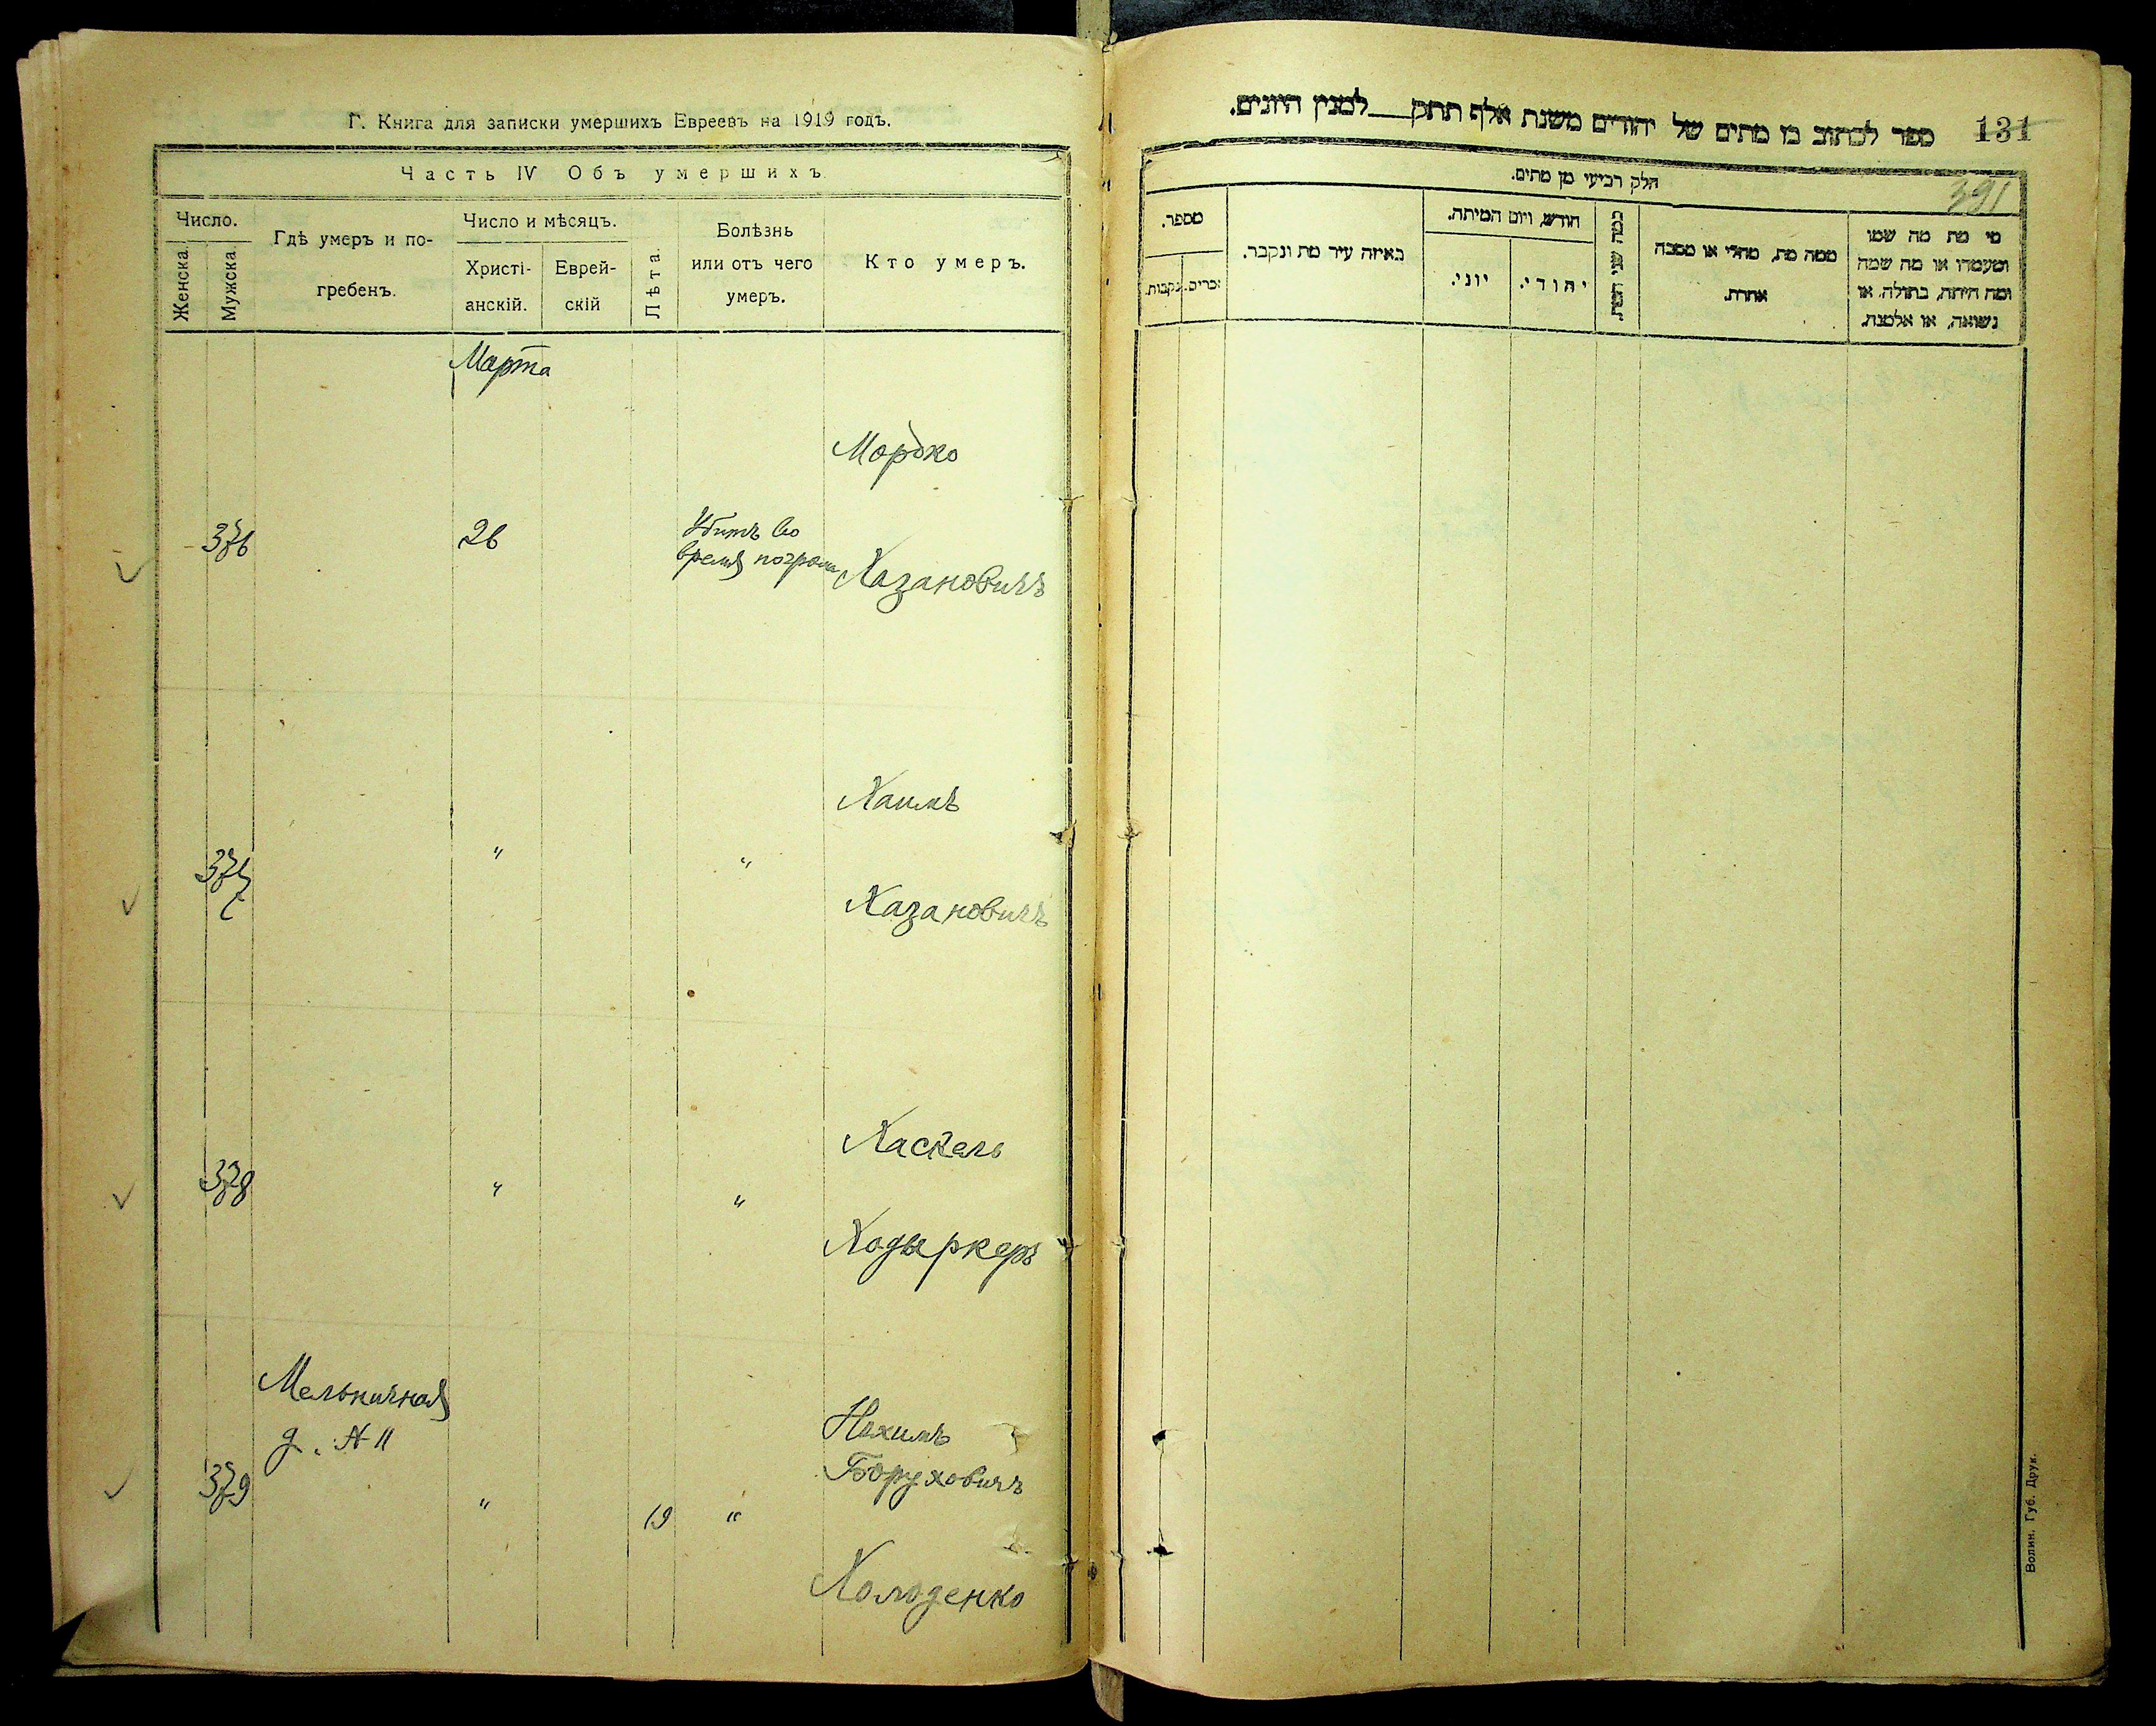 Г. Книга для записки умершихъ Евреевъ на 1919 годъ.
Часть IV Объ умершихъ
Число.
Женска.
Мужска.
Гдѣ умеръ и по-
гребенъ.
Число и мѣсяцъ.
Христі-
анскій.
Еврей-
скій
Лѣта.
Болѣзнь
или отъ чего
умеръ.
Кто умеръ.
Марта
Мордко
376
26
Убитъ во
время погрома
Хазановичъ
Хаимъ
377
"
"
Хазановичъ
Хаскель
378
"
"
Ходыркеръ
Мельничная
д. № 11
Нахимъ
Боруховичъ
379
"
19
"
Холоденко
131
ספר לכתוב בו מתים של יהודים משנת אלף תתק למנין היונים.
391
חלק רביעי מן מתים.
מספר.
נקבות.
זכרים.
באיזה עיר מת ונקבר.
חודש, ויום המיתה.
יוני.
יהודי.
כמה שני המת.
ממה מת, מחלי או מסבה
אחרת.
מי מת מה שמו
ומעמדו או מה שמה
ומה היתה, בתולה, או
נשואה, או אלמנה.
Волин. Губ. Друк.